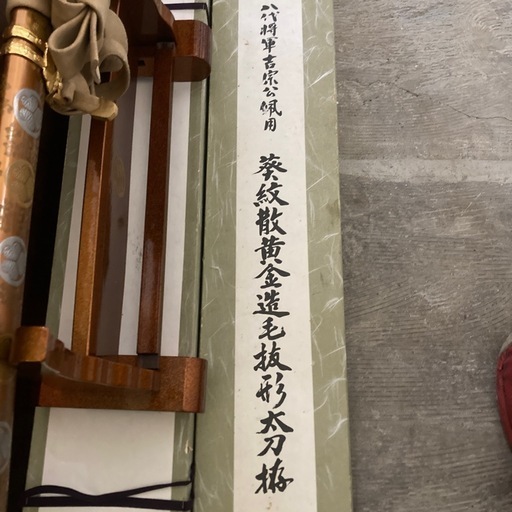 八代将軍吉宗公佩用
葵紋散黄金造毛抜形太刀拵